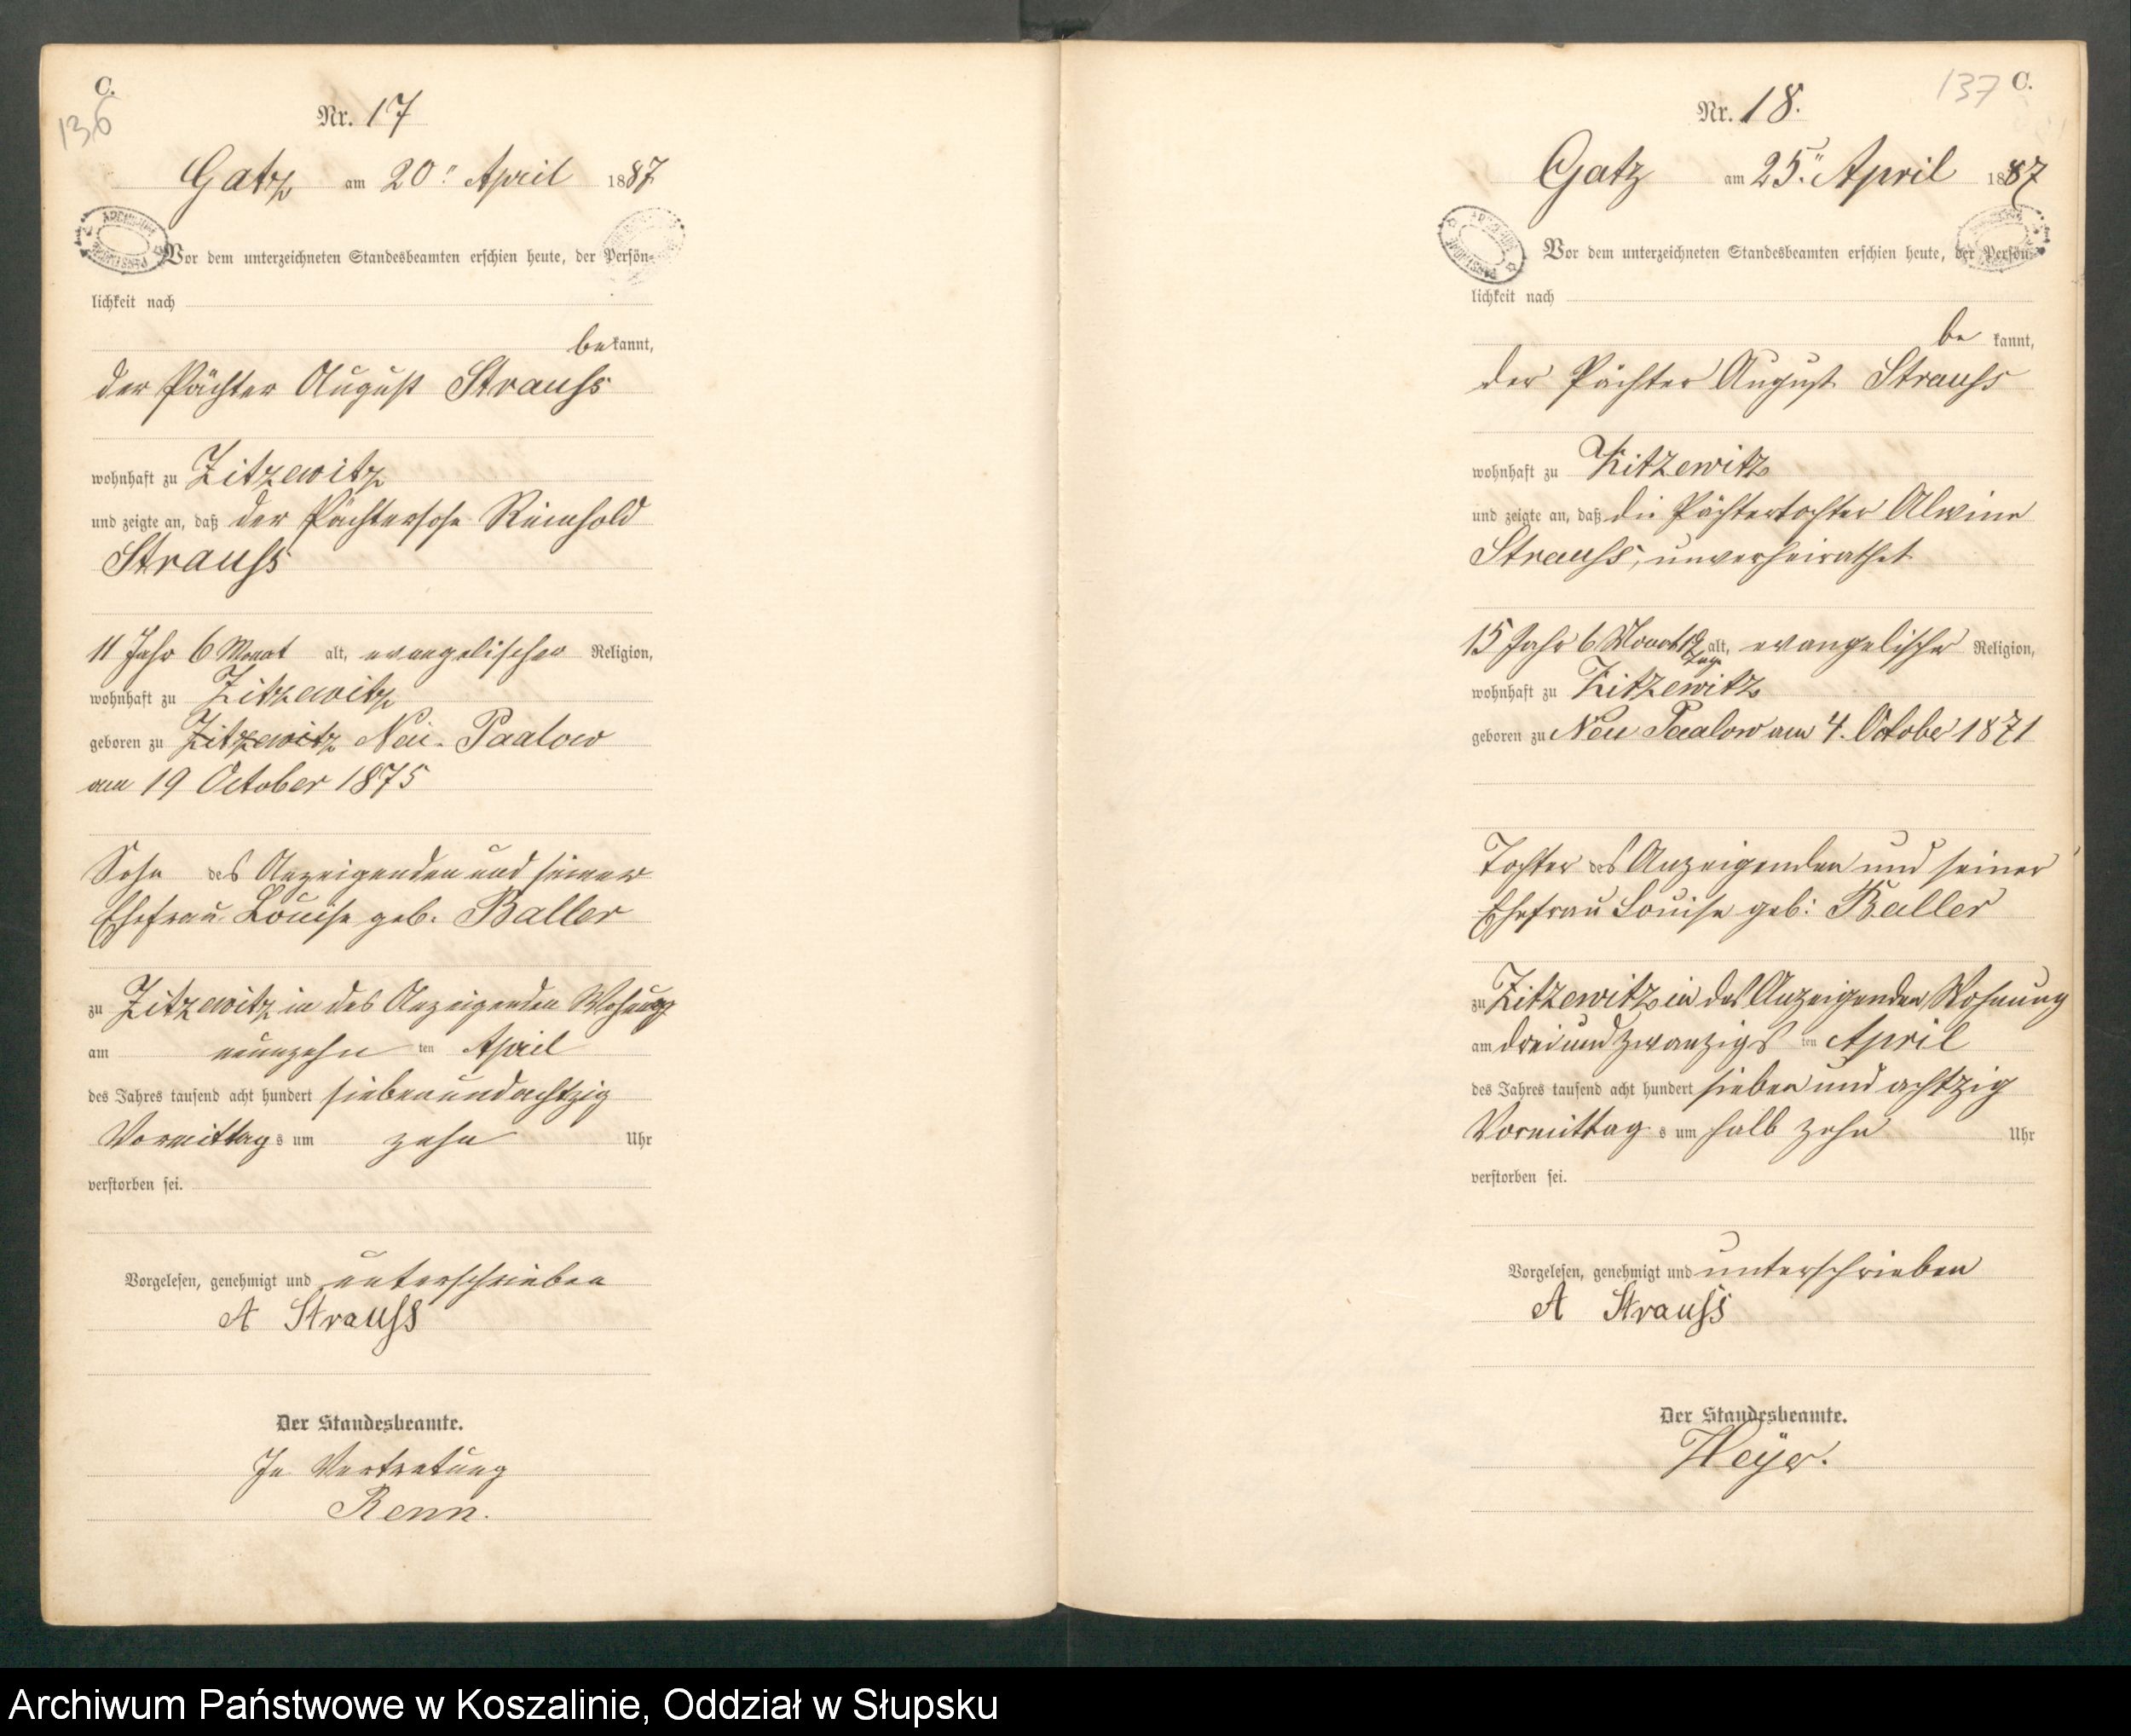 C.
136
Nr. 17
Gatz am 20.ten April 1887
Vor dem unterzeichneten Standesbeamten erschien heute, der Persön-
lichkeit nach
bekannt,
der Pächter August Strauss
wohnhaft zu Zitzewitz
und zeigte an, daß der Pächtersohn Reinhold
Strauss
11 Jahr 6 Monat alt, evangelischer Religion,
wohnhaft zu Zitzewitz
geboren zu Zitzewitz Neu-Paalow
am 19 October 1875
Sohn des Anzeigenden und seiner
Ehefrau Louise geb. Baller
zu Zitzewitz in des Anzeigenden Wohnung
am neunzehnten April
des Jahres tausend acht hundert siebenundachtzig
Vormittags um zehn Uhr
verstorben sei.
Vorgelesen, genehmigt und unterschrieben
A Strauss
Der Standesbeamte.
In Vertretung
Renn.
137 C.
Nr. 18.
Gatz am 25.ten April 1887
Vor dem unterzeichneten Standesbeamten erschien heute, der Persön-
lichkeit nach
bekannt,
der Pächter August Strauss
wohnhaft zu Zitzewitz
und zeigte an, daß die Pächtertochter Alwine
Strauss, unverheirathet
15 Jahr 6 Monat 19 Tage alt, evangelischer Religion,
wohnhaft zu Zitzewitz
geboren zu Neu Paalow am 4. October 1871
Tochter des Anzeigenden und seiner
Ehefrau Louise geb: Baller
zu Zitzewitz in des Anzeigenden Wohnung
am dreiundzwanzigsten April
des Jahres tausend acht hundert sieben und achtzig
Vormittags um halb zehn Uhr
verstorben sei.
Vorgelesen, genehmigt und unterschrieben
A Strauss
Der Standesbeamte.
Heyer.
Archiwum Państwowe w Koszalinie, Oddział w Słupsku